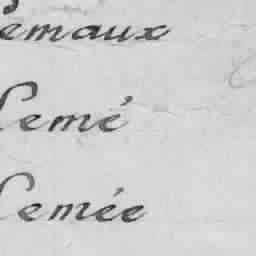 Lemaux
Lemé
Lemée